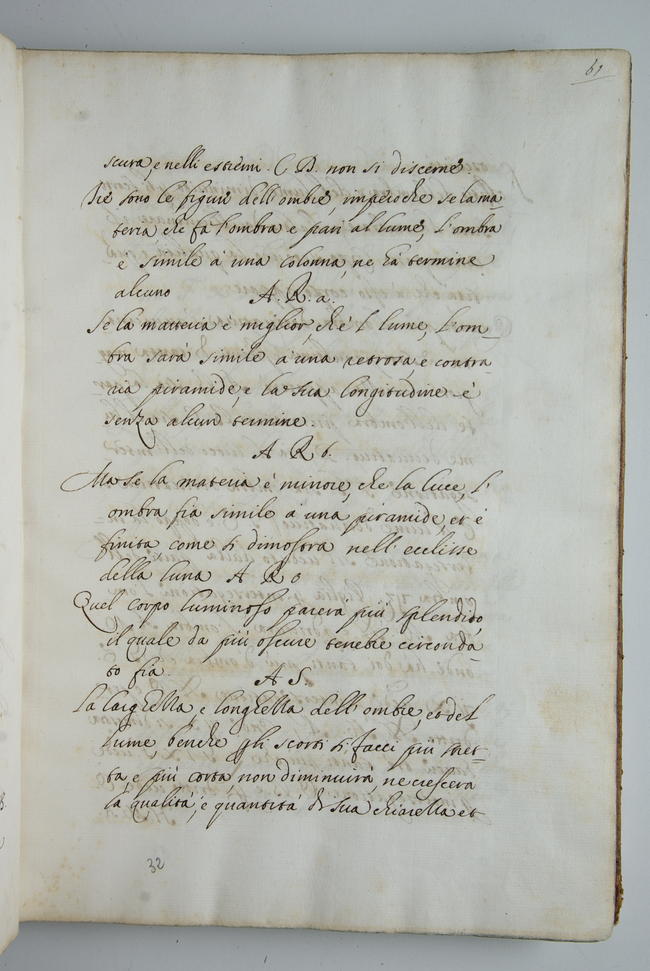 61
scura, e nelli estremi. C D. non si discerne.
Tre sono le figure dell'ombre, imperoche se la ma-
teria, che fa l'ombra e pari al lume, l'ombra
e simile a una colonna, ne ha termine
alcuno A. R. a.
Se la matteria è miglior, ch'è l lume, l'om-
bra sarà simile a una retrosa, e contra-
ria piramide, e la sua longitudine è
senza alcun termine.
A R 6.
Ma se la materia è minore, che la luce, l'
ombra fia simile a una piramide, et è
finita, come si dimostra nell' eclisse
della luna A R O
Quel corpo luminoso parerà più splendido,
il quale da più oscure tenebre circonda-
to fia. A S.
La larghezza, e longhezza dell'ombre, et del
lume, benche gli scorti si facci più stret-
ta, e più corta, non diminuirà, ne crescerà
la qualità, e quantità di sua chiarezza et
32